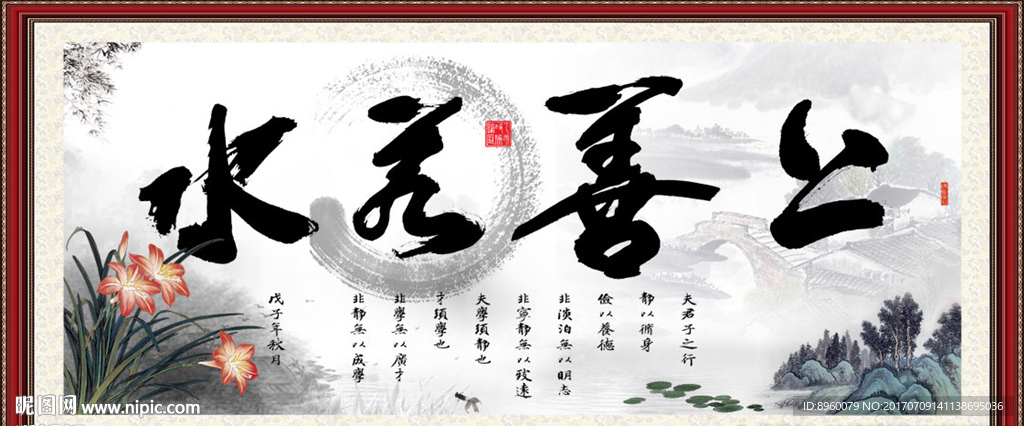 上善若水
夫君子之行
静以脩身
儉以養德
非淡泊無以明志
非寧静無以致遠
夫學須静也
才須學也
非學無以廣才
非静無以成學
戊子年秋月
昵图网 www.nipic.com
ID:8960079 NO:20170709141138695036